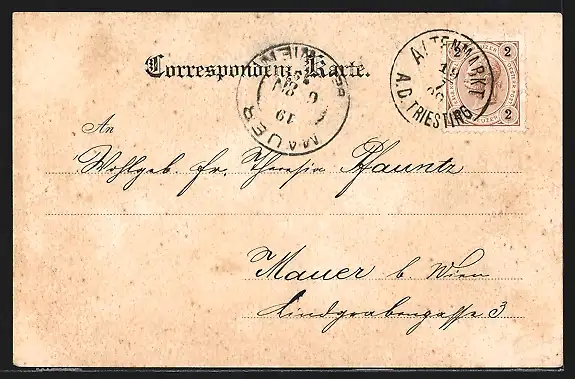 Correspondenz-Karte.
ALTENMARKT
A.D. TRIESTING
MAUER
WIEN
2 2
2 2
An
Wohlgeb. Fr. Theresia Pfauntz
Mauer b. Wien
Lindgrabengasse 3